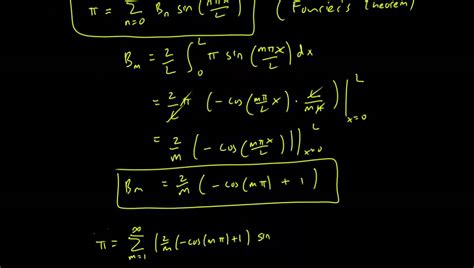 π = Σ_{n=0} B_n sin(nπx/L) (Fourier's Theorem)
B_m = 2/L ∫_0^L π sin(mπx/L) dx
= 2/L π (-cos(mπ/L x) · L/mπ) |_{x=0}^L
= 2/m (-cos(mπx/L)) |_{x=0}^L
B_m = 2/m (-cos(mπ) + 1)
π = Σ_{m=1}^∞ (2/m (-cos(mπ)+1) sin